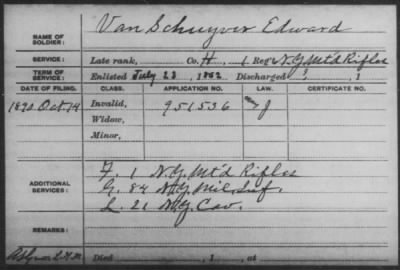 NAME OF SOLDIER: Van Schuyver Edward
SERVICE: Late rank, Co. H, 1 Reg't N.Y. Mt'd Rifles
TERM OF SERVICE: Enlisted July 23, 1862 Discharged , 1
DATE OF FILING. CLASS. APPLICATION NO. LAW. CERTIFICATE NO.
1890 Oct 14 Invalid, 951536 J
Widow,
Minor,
F. 1 N.Y. Mt'd Rifles
ADDITIONAL SERVICES: G. 84 N.Y. Mil. Inf.
L. 21 N.Y. Cav.
REMARKS:
Died , 1 , at